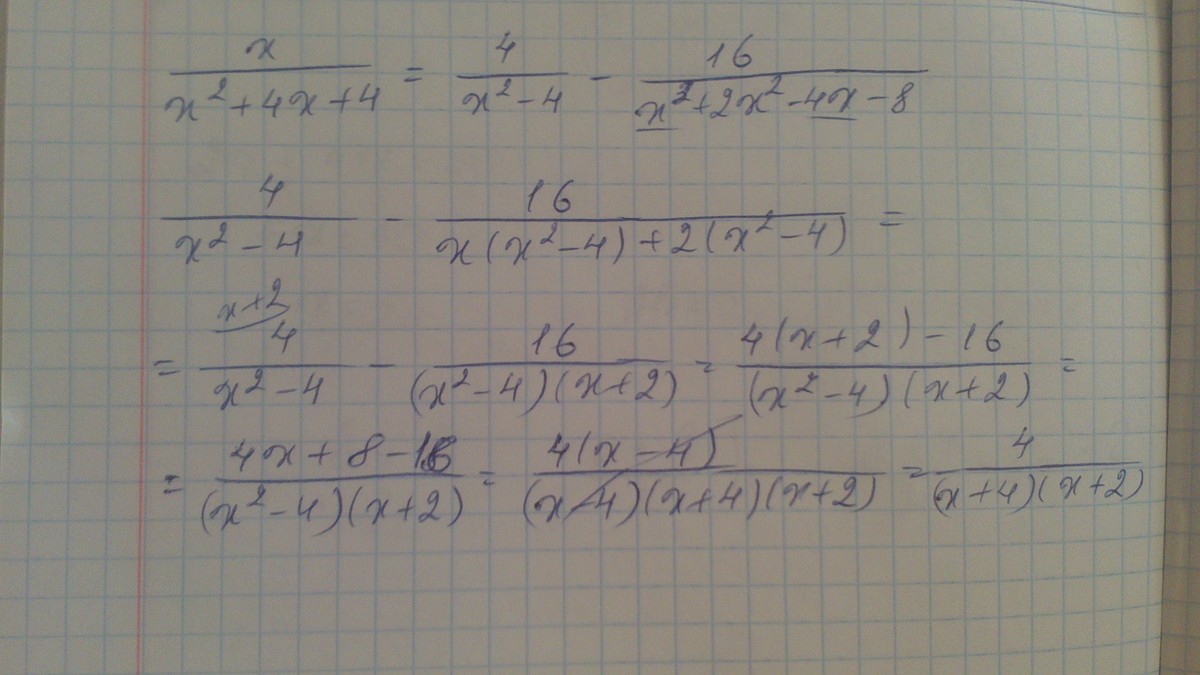 x/(x²+4x+4) = 4/(x²-4) - 16/(x³+2x²-4x-8)
4/(x²-4) - 16/(x(x²-4)+2(x²-4)) =
x+2
= 4/(x²-4) - 16/((x²-4)(x+2)) = (4(x+2)-16)/((x²-4)(x+2)) =
= (4x+8-16)/((x²-4)(x+2)) = 4(x-4)/((x-4)(x+4)(x+2)) = 4/((x+4)(x+2))